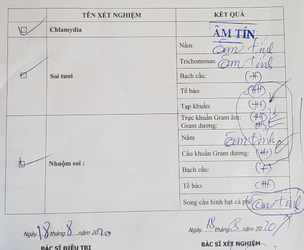 TÊN XÉT NGHIỆM KẾT QUẢ
Chlamydia ÂM TÍN
Soi tươi
Nấm: âm tính
Trichomonas: âm tính
Bạch cầu: (+)
Tế bào: (++)
Tạp khuẩn: (++)
Trực khuẩn Gram âm: (++)
Gram dương: (++)
Nhuộm soi :
Nấm âm tính
Cầu khuẩn Gram dương: (+)
Bạch cầu: (+)
Tế bào: (+)
Song cầu hình hạt cà phê âm tính
Ngày 18 tháng 8 năm 2020 Ngày 18 tháng 8 năm 2020
BÁC SĨ ĐIỀU TRỊ BÁC SĨ XÉT NGHIỆM